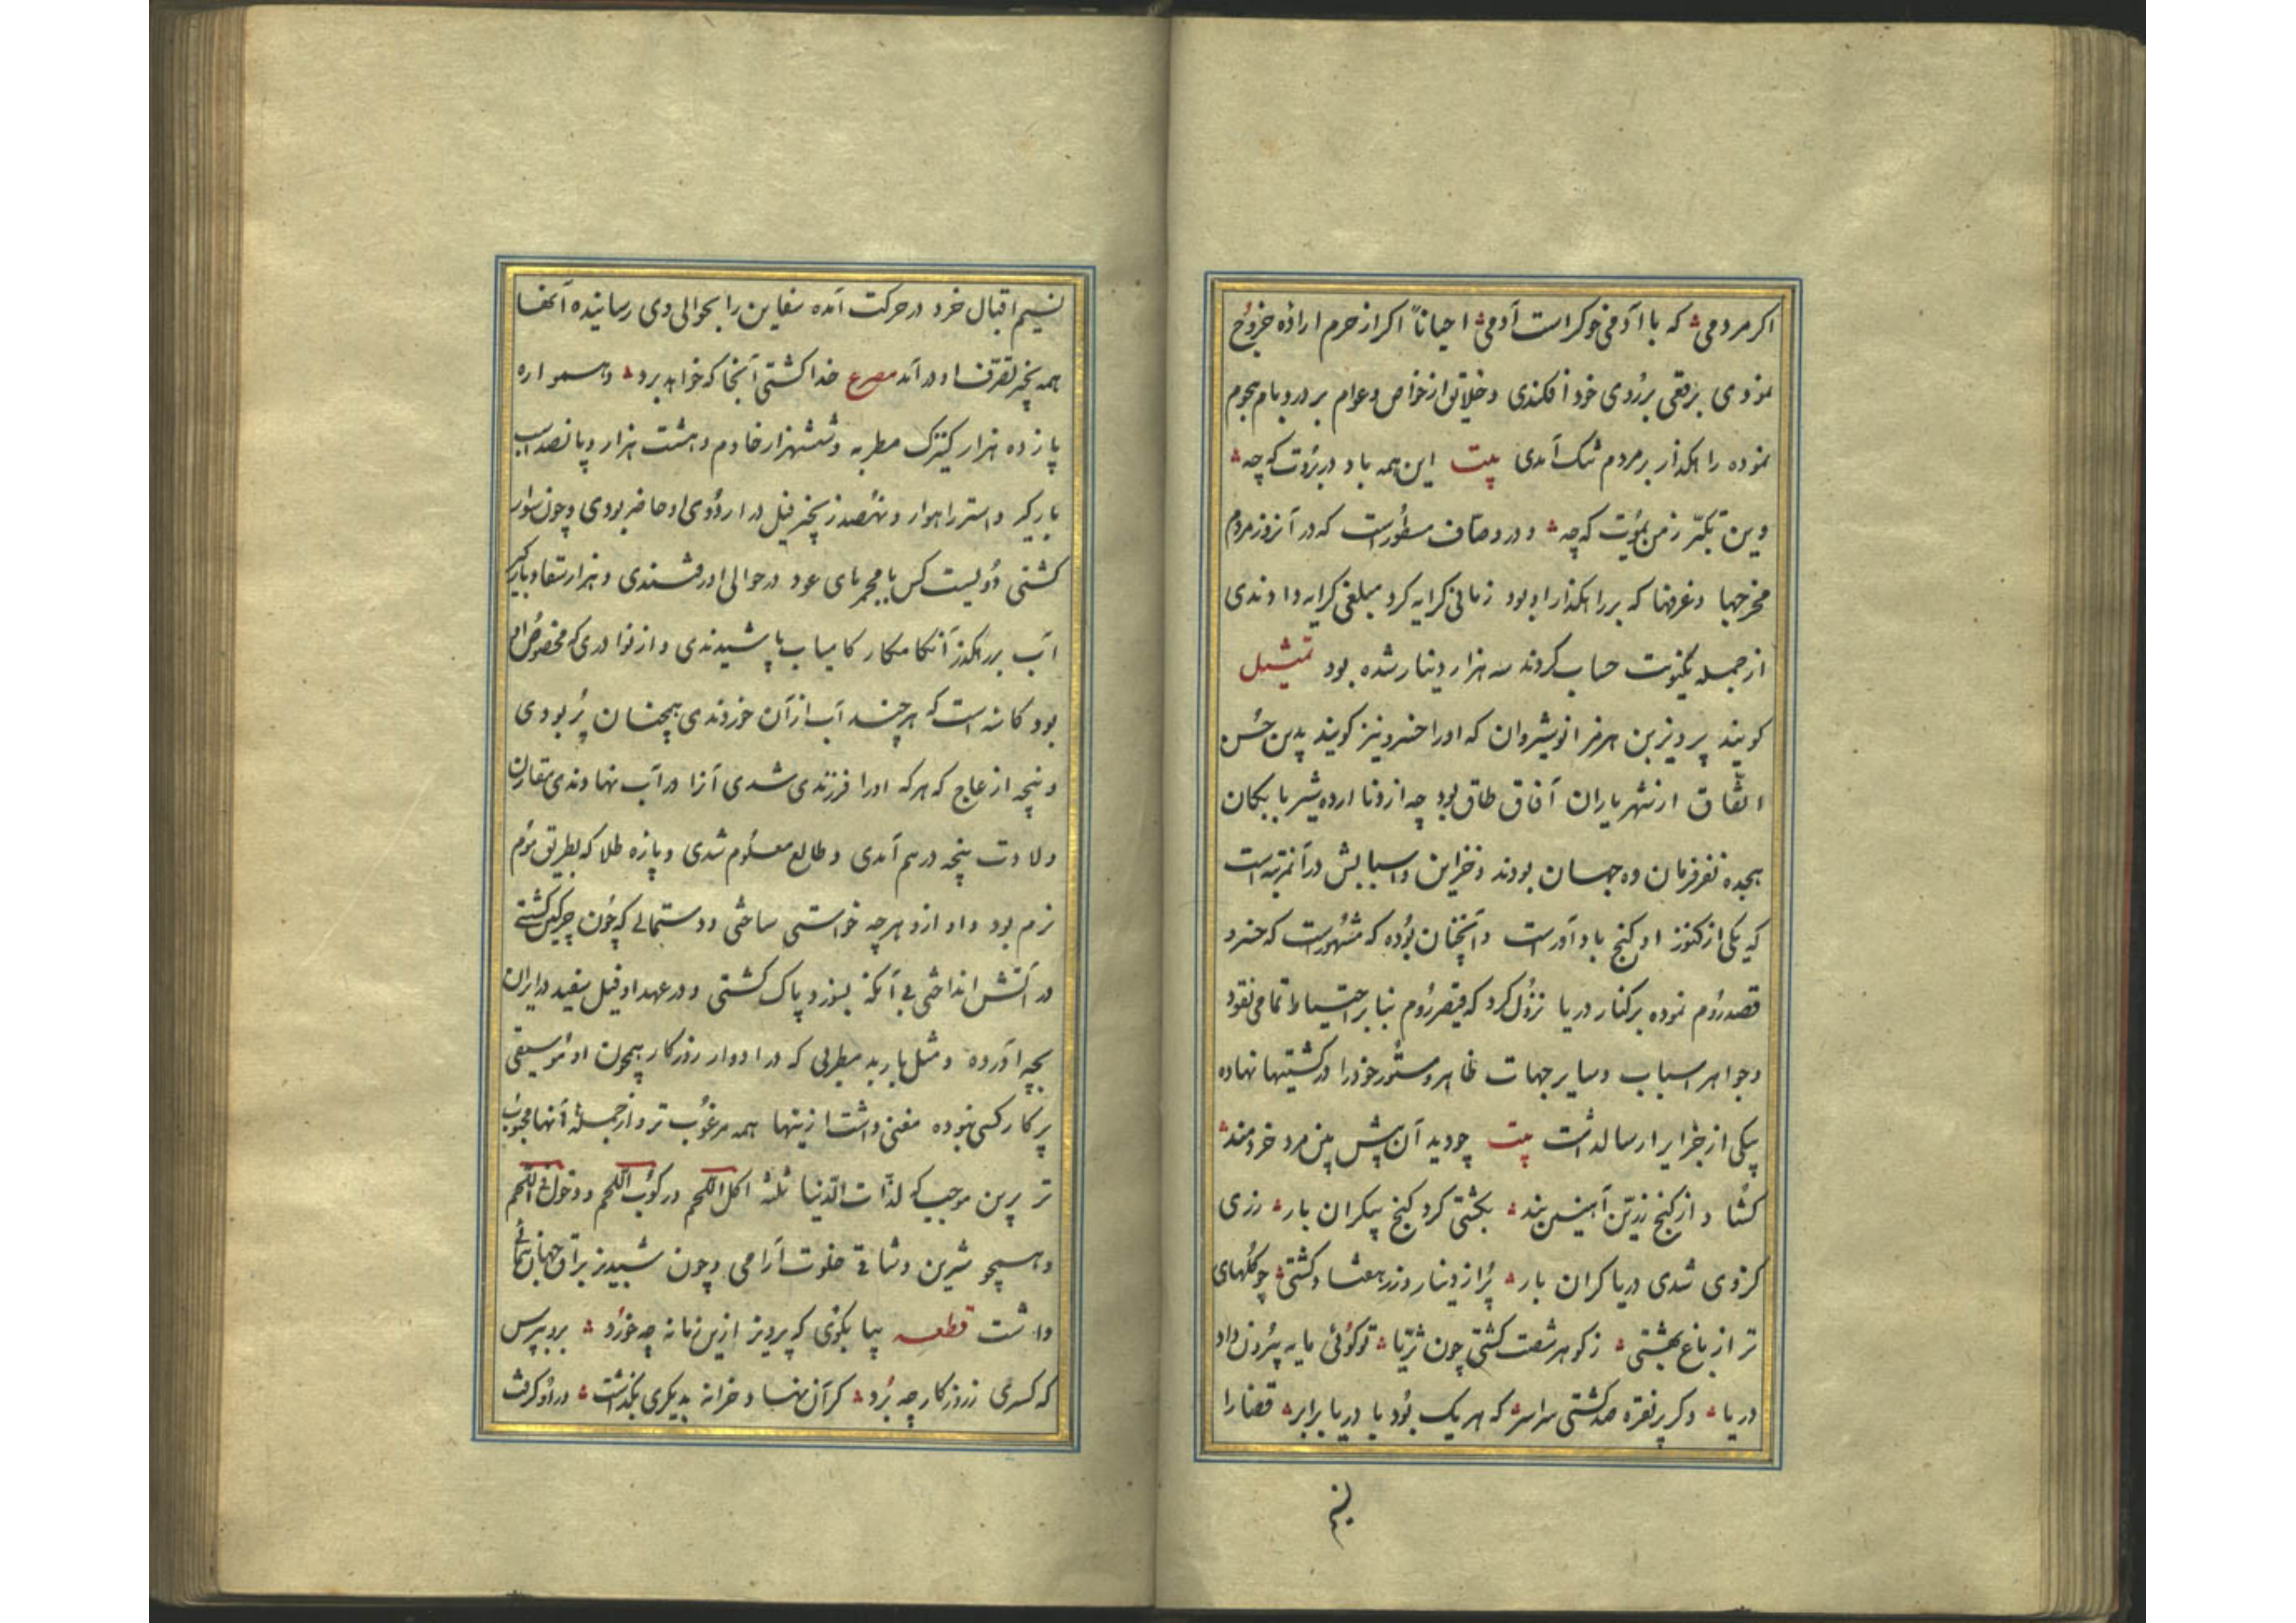 اکر مردمی که با آدمی خوکر است آدمی احیاناً اکر از حرم اراده خروج
نمودی برقعی بر روی خود افکندی و خلایق از خواص و عوام بر در و بام هجوم
نموده راهکذار بر مردم تنک آمدی بیت این همه باد در بروت که چه
وین تکبر ز من بمویت که چه و در وصاف مسطورست که در آنروز مردم
مخرجها و غرفها که بر راهکذار او بود زمانی کرایه کرد مبلغی کرایه دادندی
از جمله یکنوبت حساب کردند سه هزار دینار شده بود تمثیل
کویند پرویز بن هرمز انوشیروان که او را خسرو نیز کویند بدین حسن
اتفاق از شهریاران آفاق طاق بود چه ازو تا اردهشیر بابکان
هجده نفر فرمان ده جهان بودند و خزاین و اسبابش در آنمرتبه است
که یکی از کنوز او کنج باد آورست و آنچنان بوده که مشهورست که خسرو
قصد روم نموده بر کنار دریا نزول کرد که قیصر روم بنابر احتیاط تمامی نقود
و جواهر اسباب و سایر جهات ظاهر و مستور خود را در کشتیها نهاده
بیکی از جزایر ارسال داشت بیت چو دید آن پیش بین مرد خردمند
کشاد از کنج زرین آهنین بند بکشتی کرد کنج بیکران بار رزی
کزوی شدی دریا کران بار پر از دینار و زر هفتاد کشتی چو کلهای
تر از باغ بهشتی ز کوهر شصت کشتی چون ثریا تو کوئی مایه بیرون داد
دریا دکر پر نقره صد کشتی سراسر که هر یک بود با دریا برابر قضا را
نسیم
نسیم اقبال خرد در حرکت آمده سفاین را بحوالی وی رسانیده آنها
همه بخیر تصرف او در آمد مصرع خدا کشتی آنجا که خواهد برد و همواره
پانزده هزار کنیزک مطربه و ششهزار خادم و هشت هزار و پانصد اسب
بارکیر و استر راهوار و نهصد زنجیر فیل در اردوی او حاضر بودی و چون سوار
کشتی دویست کس با مجمرهای عود در حوالی او رفتندی و هزار سقا و بارکیر
آب بر رهکذر آنکامکار کامیاب پاشیدندی و از نوادری که مخصوص او
بود کاسه است که هر چند آب از آن خوردندی همچنان پر بودی
و پنجه از عاج که هر که او را فرزندی شدی آنرا در آب نهادندی مقارن
ولادت پنجه در هم آمدی و طالع معلوم شدی و پاره طلا که بطریق موم
نرم بود و او ازو هر چه خواستی ساختی و دستمالی که چون چرکین کشتی
در آتش انداختی بی آنکه بسوزد پاک کشتی و در عهد او فیل سفید در ایران
بچه آورده و مثل باربد مطربی که در ادوار روزکار همچون او موسیقی
پر کار کسی نبوده مغنی داشت ازینها همه مرغوب تر و از جمله آنها محبوب
تر برین موجب که لذات الدنیا ثلثة اکل اللحم و رکوب اللحم و دخول فی اللحم
و همچو شیرین و شاقی خلوت آرامی و چون شبدیز براق جهان پیمائی
داشت قطعه بیا بکوی که پرویز ازین زمانه چه خورد برو بپرس
که کسری ز روزکار چه برد کر آن نهاد خزانه بدیکری بکذاشت ور او کرفت